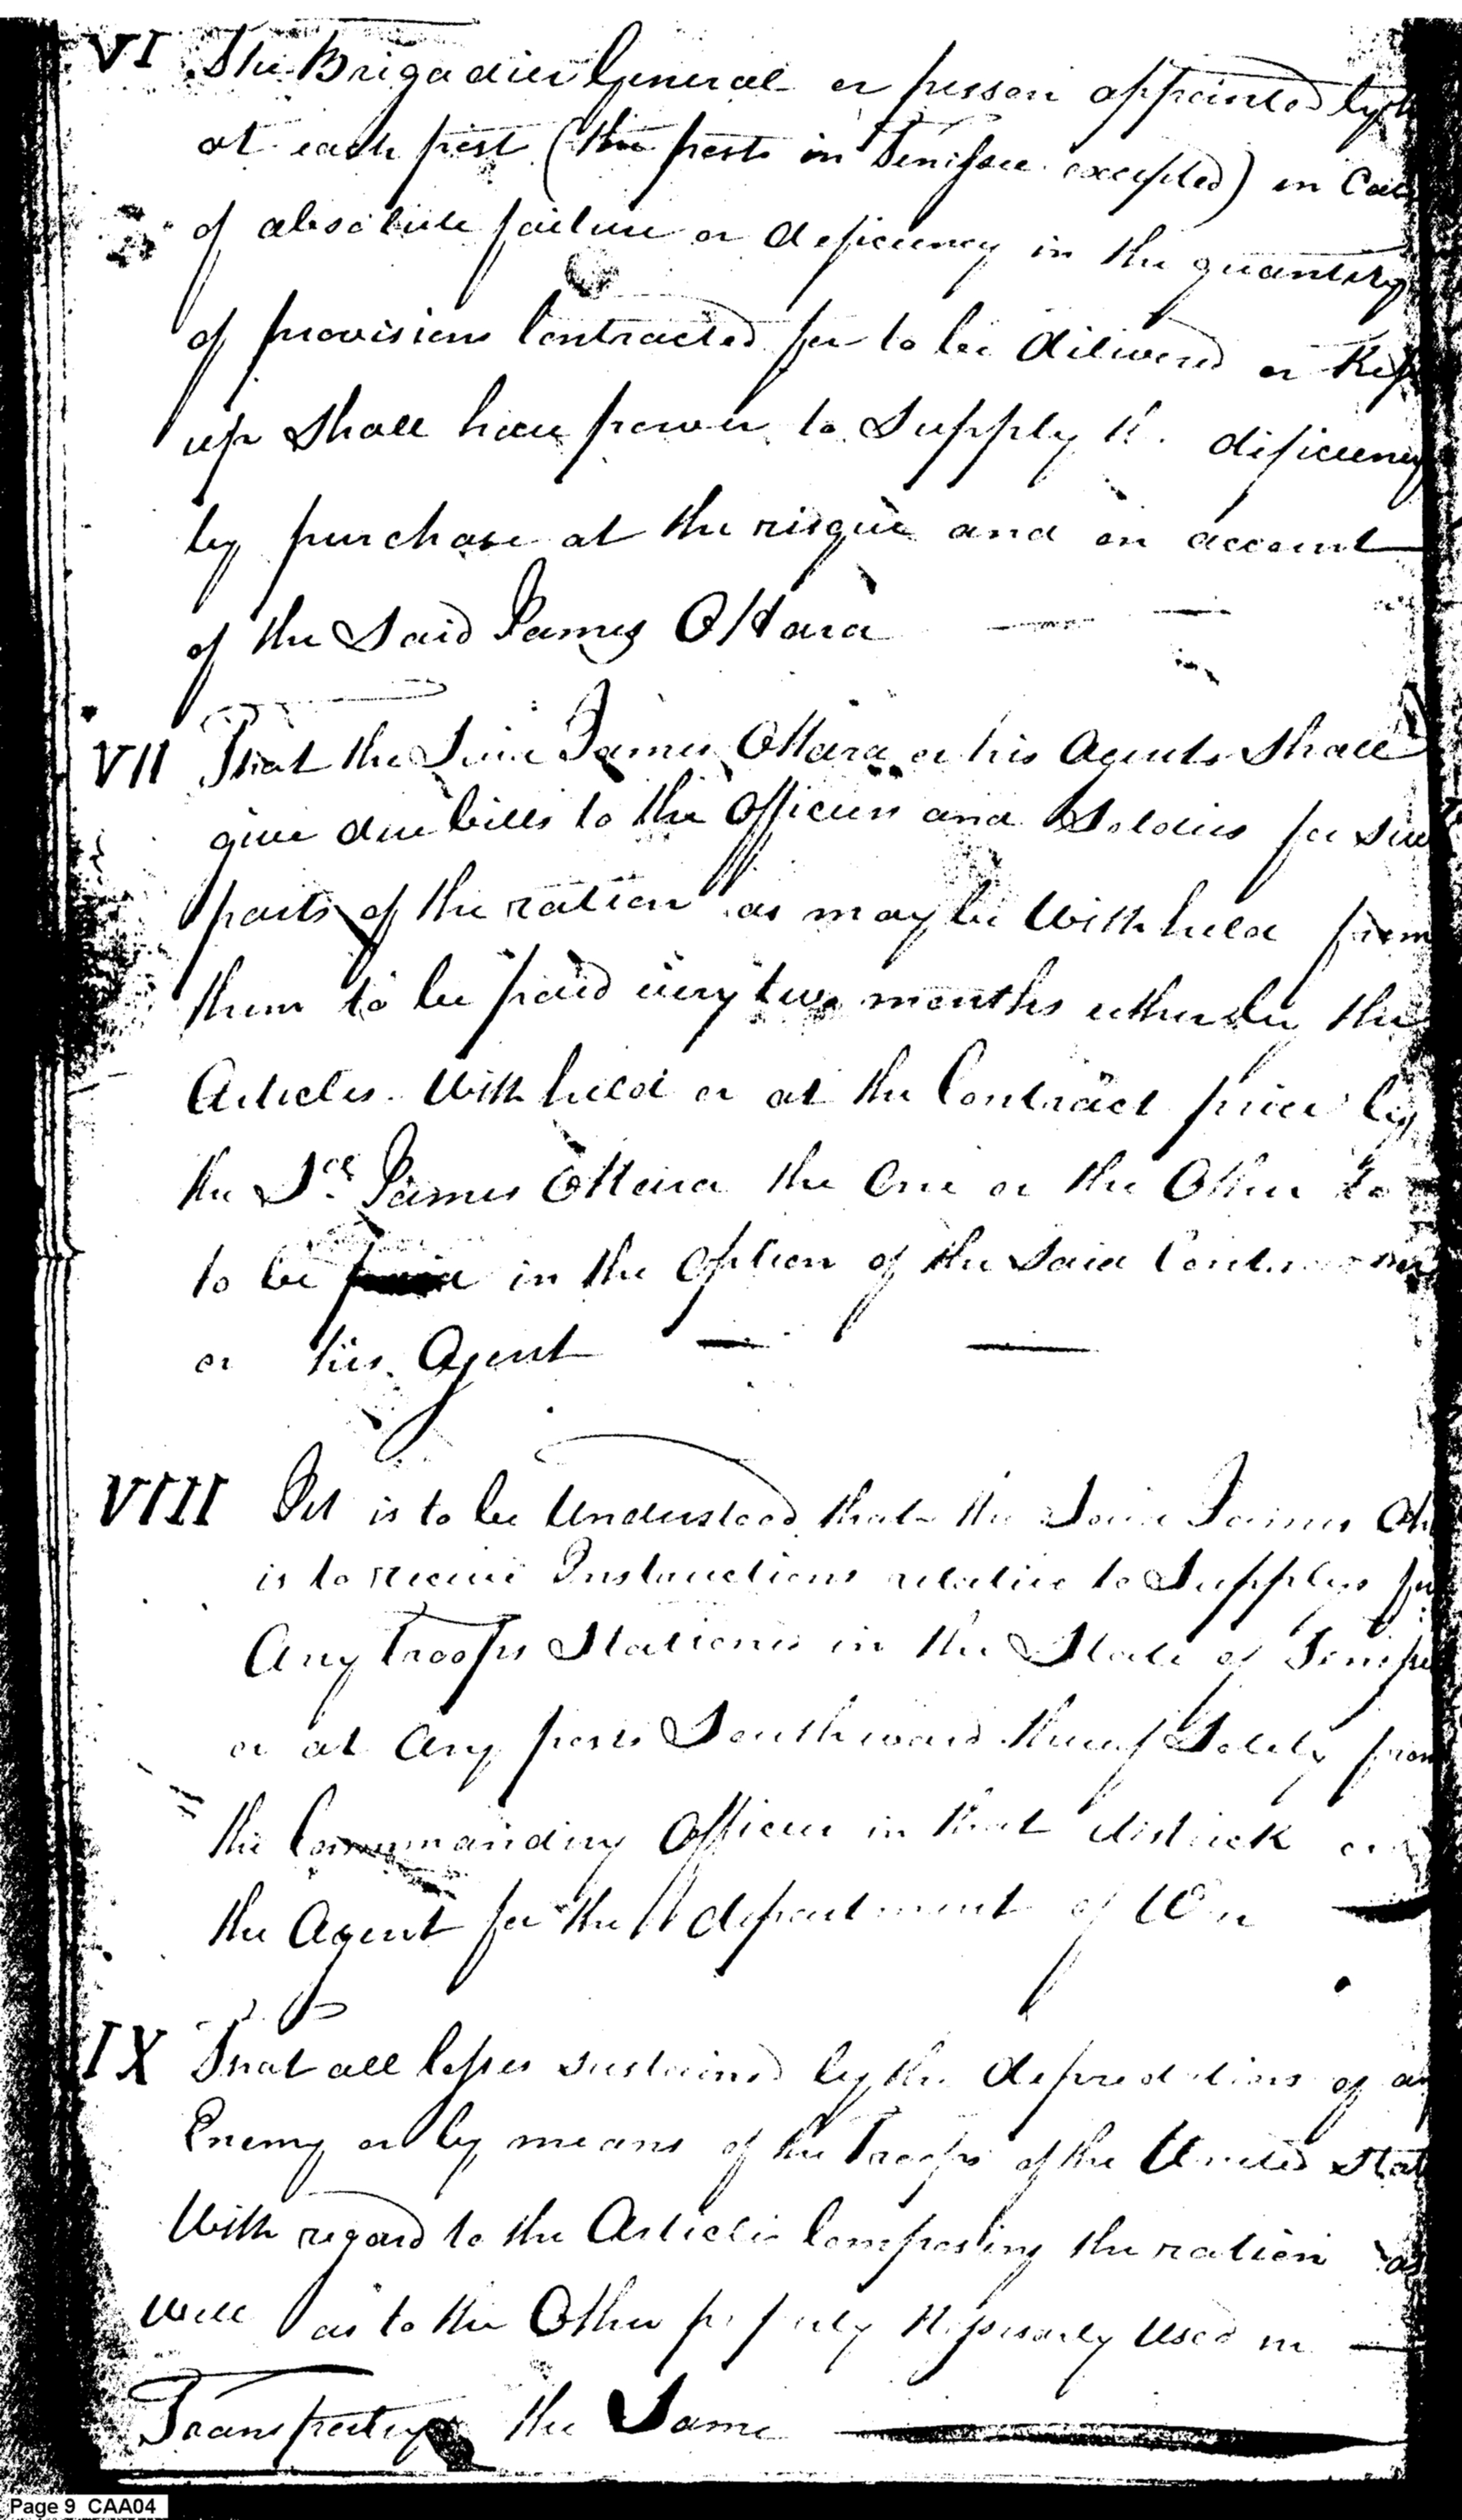 VI The Brigadier General or person appointed by
at each post (the posts in Tenissee excepted) in Case
of absolute failure or deficiency in the quantity
of provisions Contracted for to be delivered or Kept
up Shall have power to Supply the deficiency
by purchase at the risque and on account
of the Said James OHara
VII That the Said James OHara or his Agents Shall
give due bills to the Officers and Soldiers for such
parts of the ration as may be With held from
them to be paid every two months either by the
Articles With held or at the Contract price by
the Sd. James OHara the One or the Other to
to be in the Option of the Said Contractor
or his Agent
VIII It is to be Understood that the Said James OH
is to receive Instructions relative to Supplys for
Any Troops Stationed in the State of Tenisse
or at Any posts Southward thereof Solely from
the Commanding Officer in that districk or
the Agent for the department of War
IX That all losses sustained by the depredations of an
Enemy or by means of the Troops of the United Stat
With regard to the Articles Composing the ration as
Well as to the Other property Nessesarly Used in
Transporting the Same
Page 9 CAA04